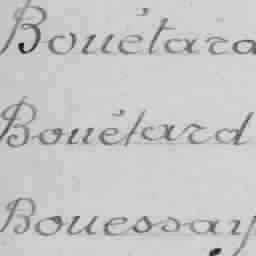 Bouétard
Bouétard
Bouessay